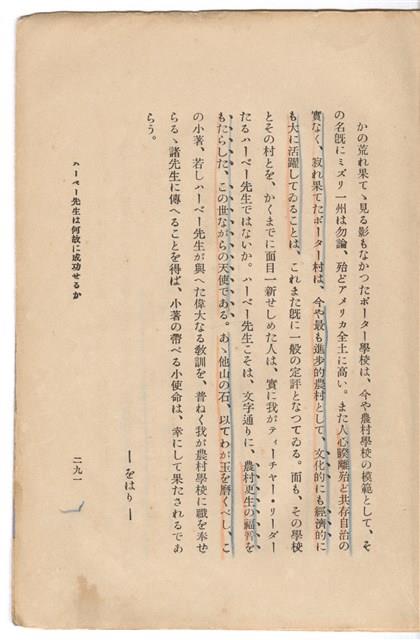 かの荒れ果てゝ見る影もなかつたポーター學校は、今や農村學校の模範として、そ
の名旣にミズリ一州は勿論、殆どアメリカ全土に高い。また人心睽離殆ど共存自治の
實なく、寂れ果てたポーター村は、今や最も進步的農村として、文化的にも經濟的に
も大に活躍してゐることは、これまた旣に一般の定評となつてゐる。而も、その學校
とその村とを、かくまでに面目一新せしめた人は、實に我がティーチャー・リーダー
たるハーベー先生ではないか。ハーベー先生こそは、文字通りに、農村更生の福音を
もたらした、この世ながらの天使である。あゝ他山の石、以てわが玉を磨くべし、こ
の小著、若しハーベー先生が與へた偉大なる敎訓を、普ねく我が農村學校に職を奉せ
らるゝ諸先生に傳へることを得ば、小著の帶べる小使命は、幸にして果たされるであ
らう。
―をはり―
ハーベー先生は何故に成功せるか
二九一